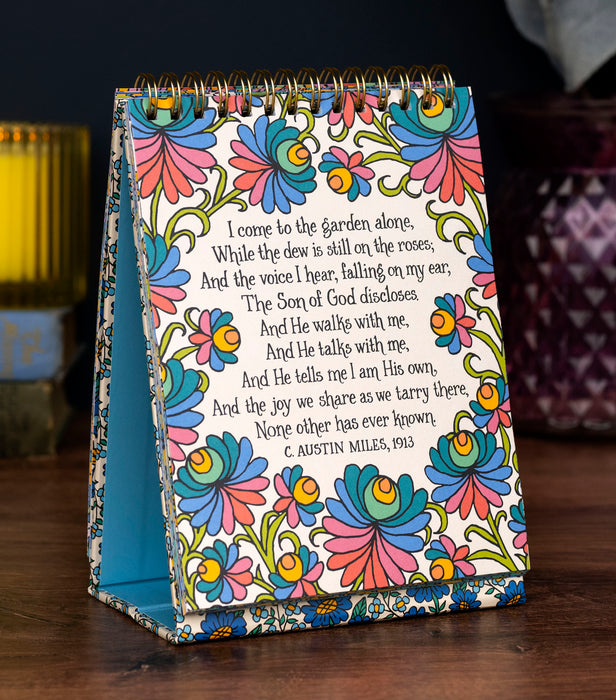 I come to the garden alone,
While the dew is still on the roses;
And the voice I hear, falling on my ear,
The Son of God discloses.
And He walks with me,
And He talks with me,
And He tells me I am His own,
And the joy we share as we tarry there,
None other has ever known.
C. AUSTIN MILES, 1913